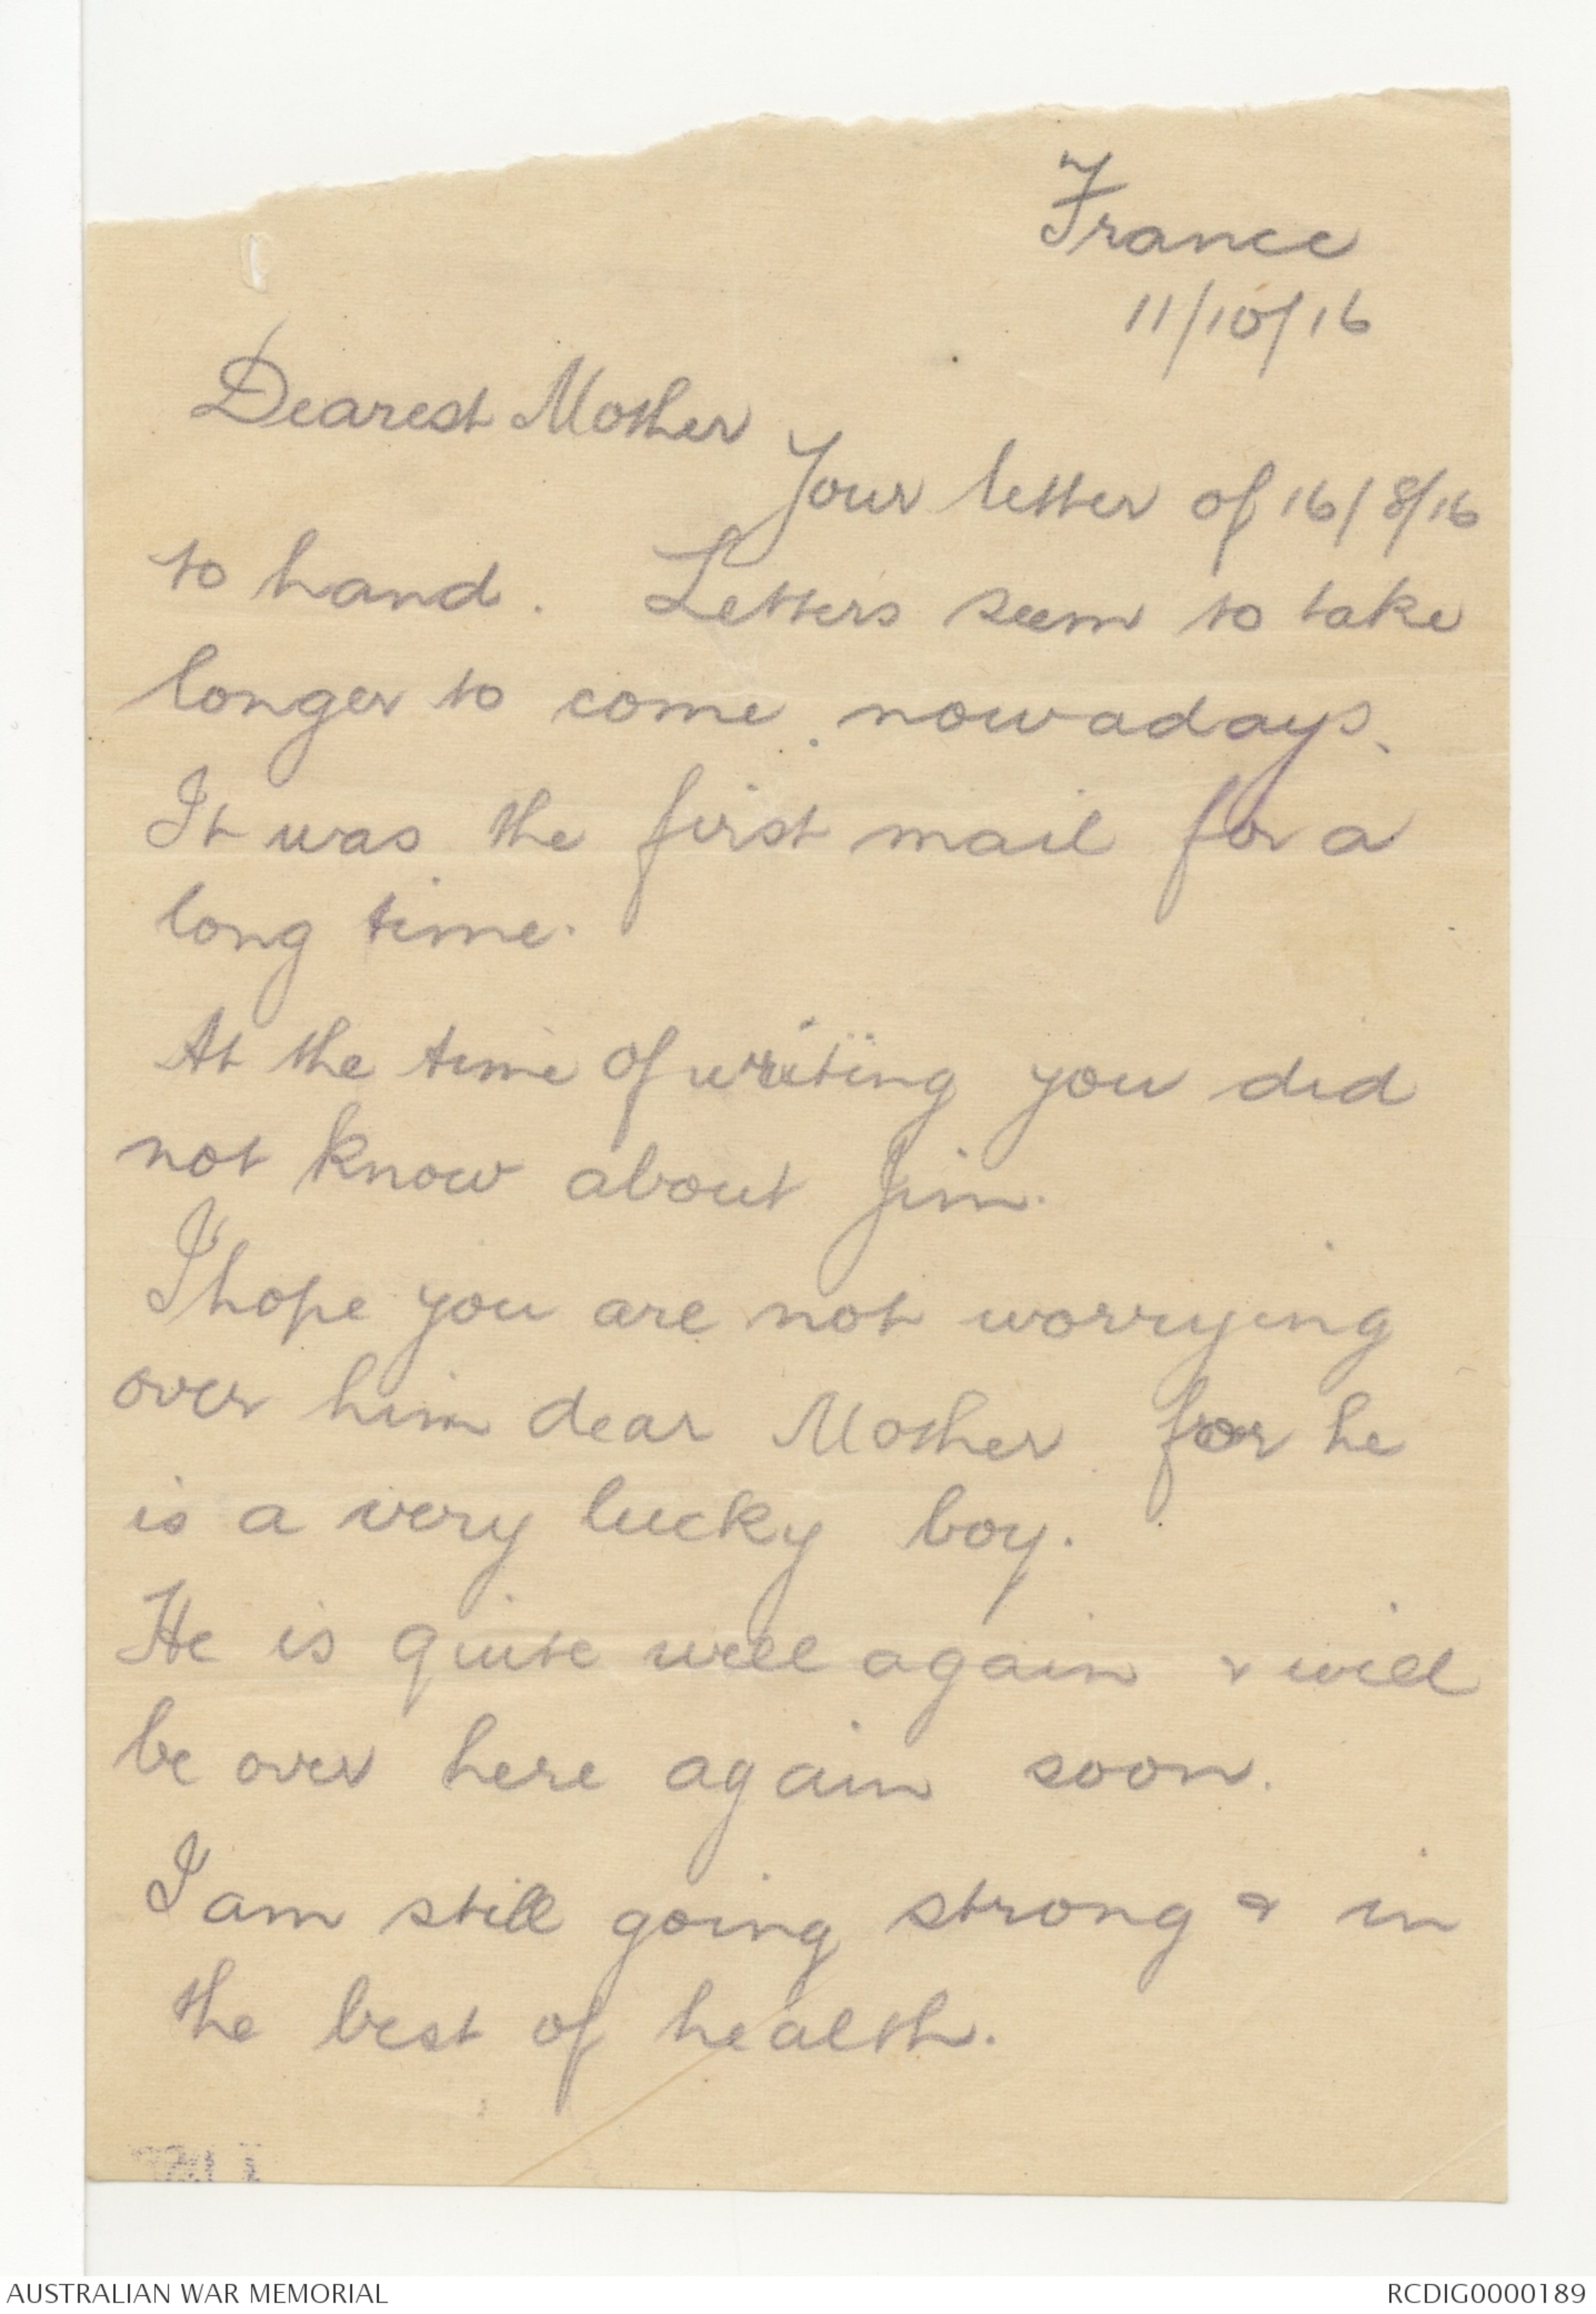 France
11/10/16
Dearest Mother
Your letter of 16/8/16
to hand. Letters seem to take
longer to come nowadays.
It was the first mail for a
long time.
At the time of writing you did
not know about Jim.
I hope you are not worrying
over him dear Mother for he
is a very lucky boy.
He is quite well again & will
be over here again soon.
I am still going strong & in
the best of health.
AUSTRALIAN WAR MEMORIAL
RCDIG0000189